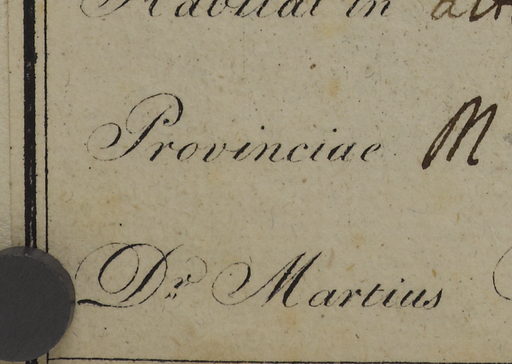 Habitat in
Provinciae M
Dr. Martius